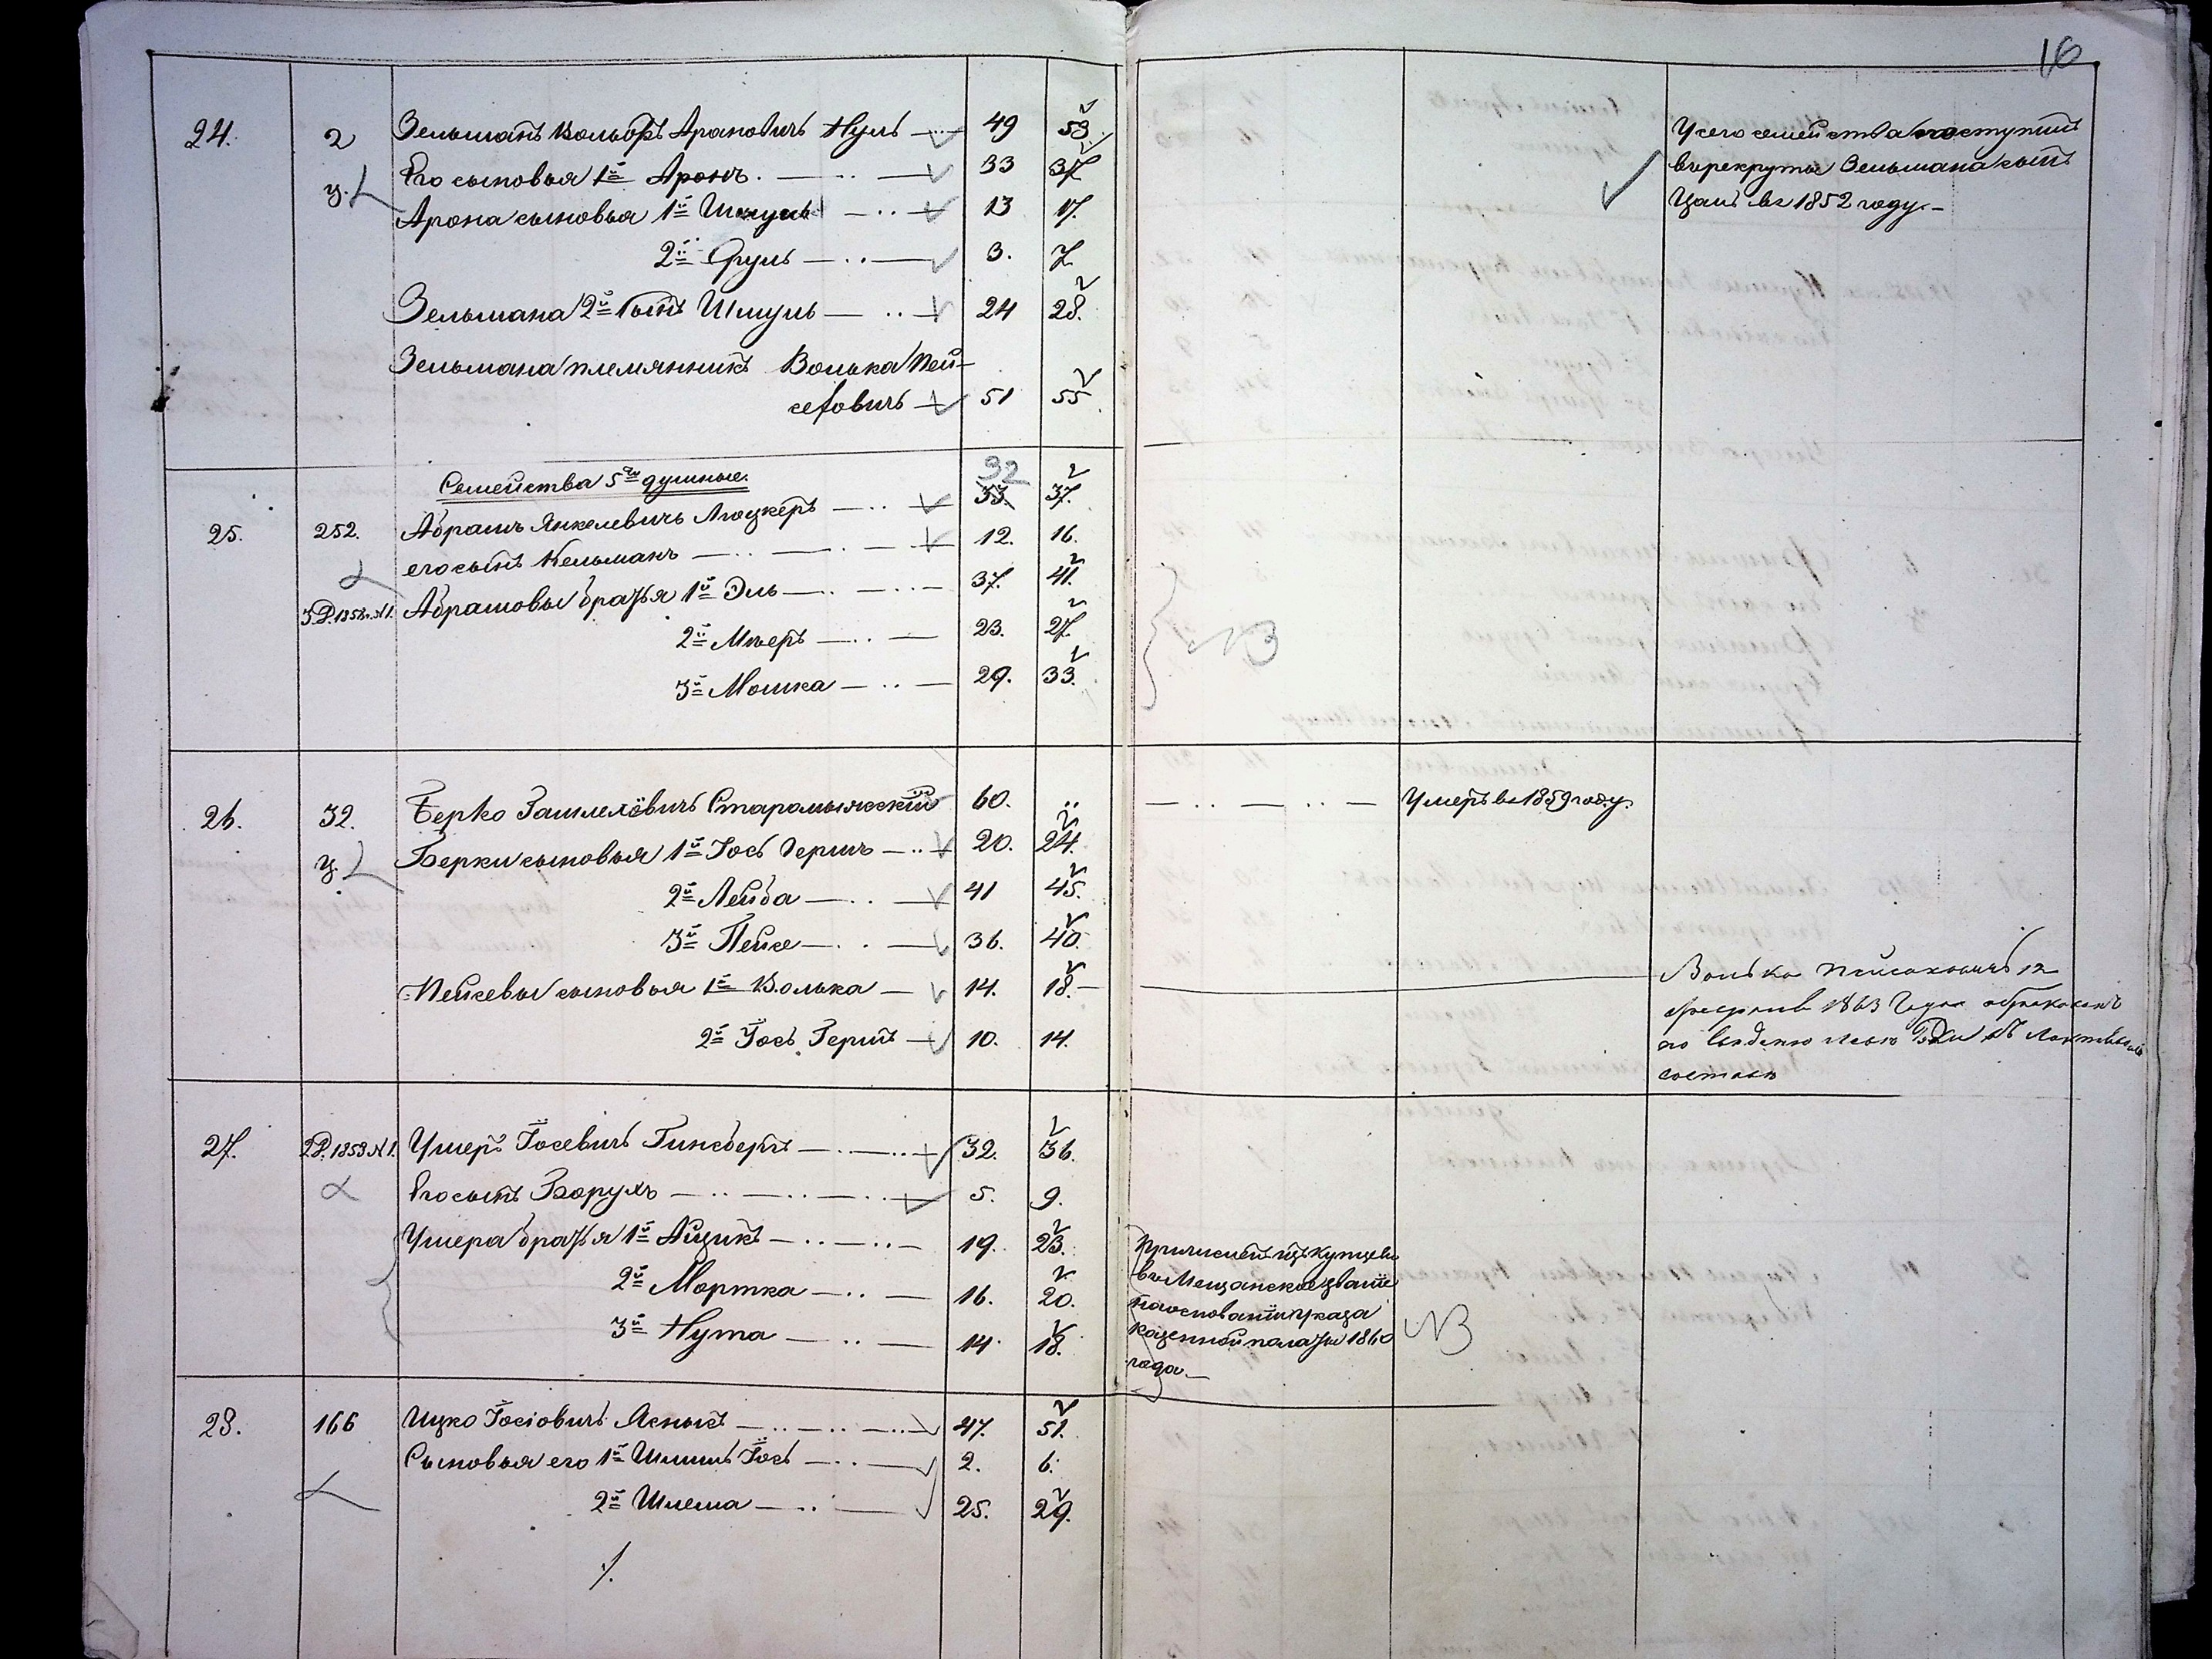 16
24. 2 Зельманъ Вольфъ Ароновичъ Нуль 49 53.
Его сыновья 1й Аронъ. 33 37
ц. Арона сыновья 1й Шмуль 13 17.
2й Сруль 3. 7
Зельмана 2й Сынъ Шмуль 24 28.
Зельмана племянникъ Волька Пей-
сеховичъ 51 55
У сего семейства поступилъ
въ рекруты Зельмана сынъ
въ 1852 году.
Семейства 5ти душные.
32
25. 252. Абрамъ Янкелевичъ 33. 37.
его сынъ Кельманъ 12. 16.
3.Р.1858г.N1. Абрамовы братья 1й Эль 37. 41.
2й Мееръ 23. 27.
3й Мошка 29. 33.
NB
26. 32. Берко Зайлеховичъ 60. ..
Умеръ въ 1859 году.
ц. Берки сыновья 1й Іось Гершъ 20. 24.
2й Лейба 41 45.
3й Пейсе 36. 40.
Пейсевы сыновья 1й Волька 14. 18.
2й Іось Гершъ 10. 14.
Волько 12
1863 Года
27. 2Р.1853N1. Ушеръ Іосевичъ Гинсбергъ 32. 36.
Его сынъ Борухъ 5. 9.
Ушера братья 1й Айзикъ 19. 23.
2й Мортка 16. 20.
3й Нута 14. 18.
Причисленъ изъ купцевъ
въ Мещанское званіе
на основаніи указа
казенной палаты 1860
года
NB
28. 166 Ицко Іосіовичъ 47. 51.
Сыновья его 1й Іось 2. 6.
2й Шлема 25. 29.